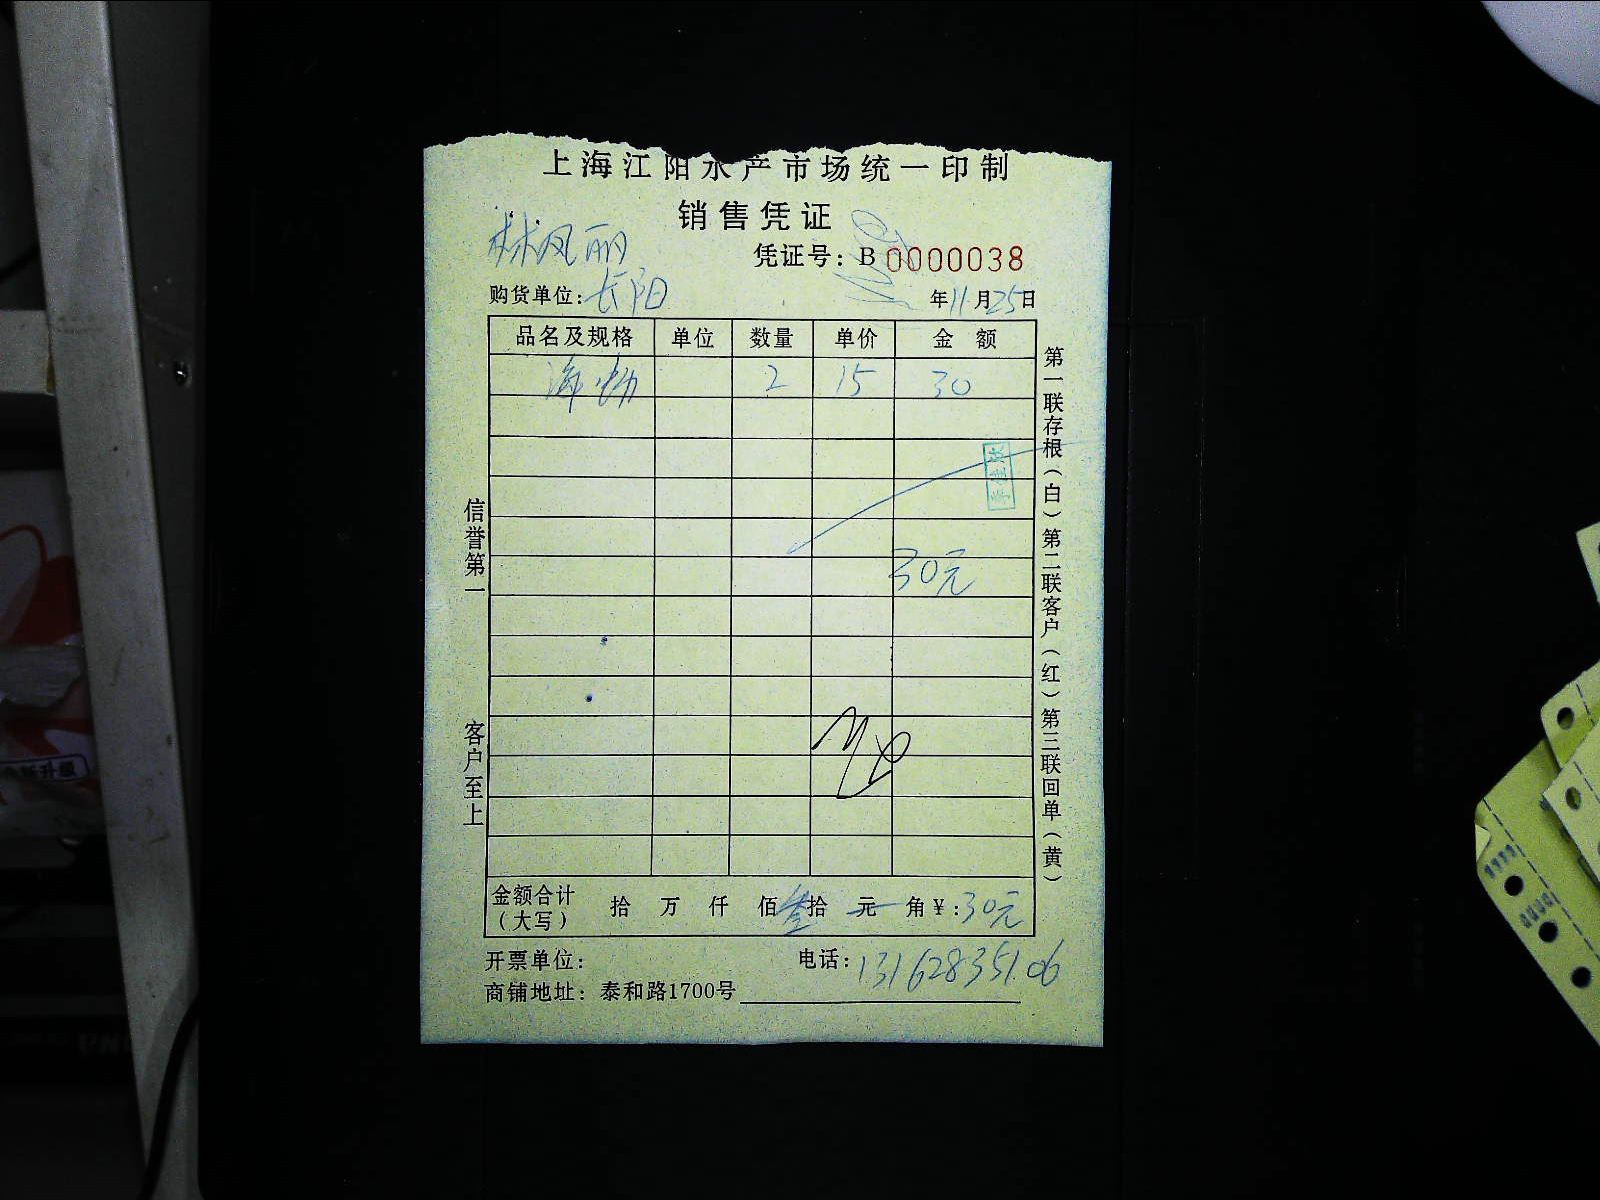 上海江阳水产市场统一印制
销售凭证
林凤丽
凭证号：B 0000038
购货单位：长阳
年11月25日
品名及规格 单位 数量 单价 金 额
2 15 30
30元
金额合计（大写） 拾 万 仟 佰叁拾 元 角￥:30元
开票单位：
电话：13162835106
商铺地址：泰和路1700号
信誉第一
客户至上
第一联存根（白）第二联客户（红）第三联回单（黄）